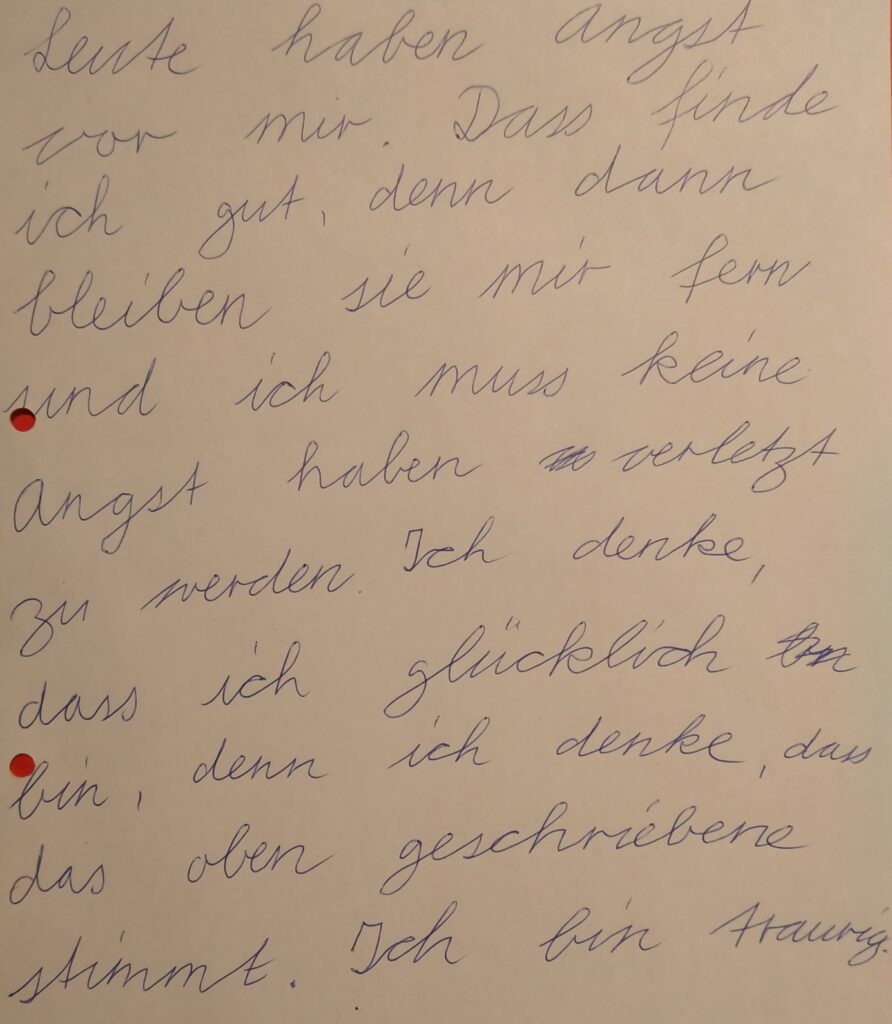 Leute haben Angst
vor mir. Dass finde
ich gut, denn dann
bleiben sie mir fern
und ich muss keine
Angst haben verletzt
zu werden. Ich denke,
dass ich glücklich
bin, denn ich denke, dass
das oben geschriebene
stimmt. Ich bin traurig.